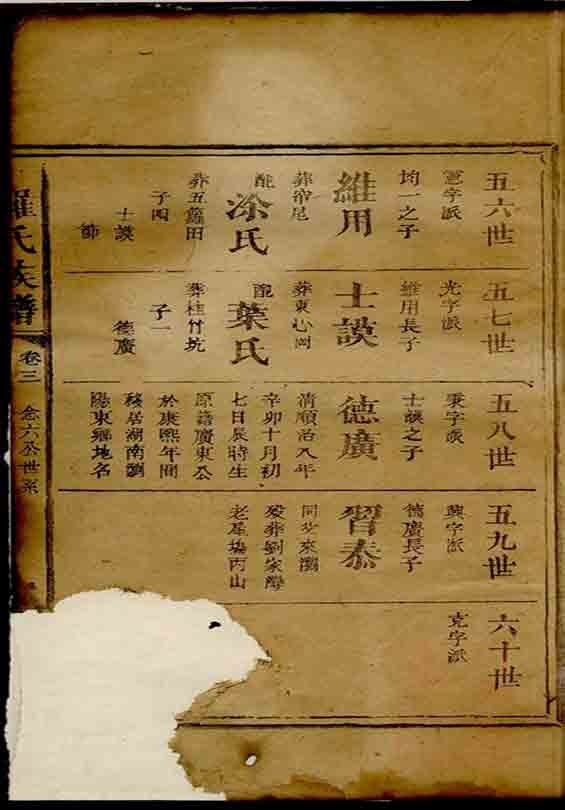 五六世
憲字派
均一之子
維用
葬帘尾
配
涂氏
葬五籮田
子四
士謨
五七世
光字派
維用長子
士謨
葬東心岡
配
葉氏
葬桂竹坑
子一
德廣
五八世
秉字派
士謨之子
德廣
清順治八年
辛卯十月初
七日辰時生
原籍廣東公
於康熙年間
移居湖南瀏
陽東鄉地名
五九世
興字派
德廣長子
習泰
同父來瀏
歿葬劉家灣
老屋塲丙山
六十世
克字派
羅氏族譜
卷三
念六公世系